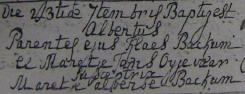 Die 23tia 7tembris Baptizest
Albertus
Parentes ejus Claes Backum
et Maretje Jans Oyevaar
Susceptrix
Maretje Alberse Backum